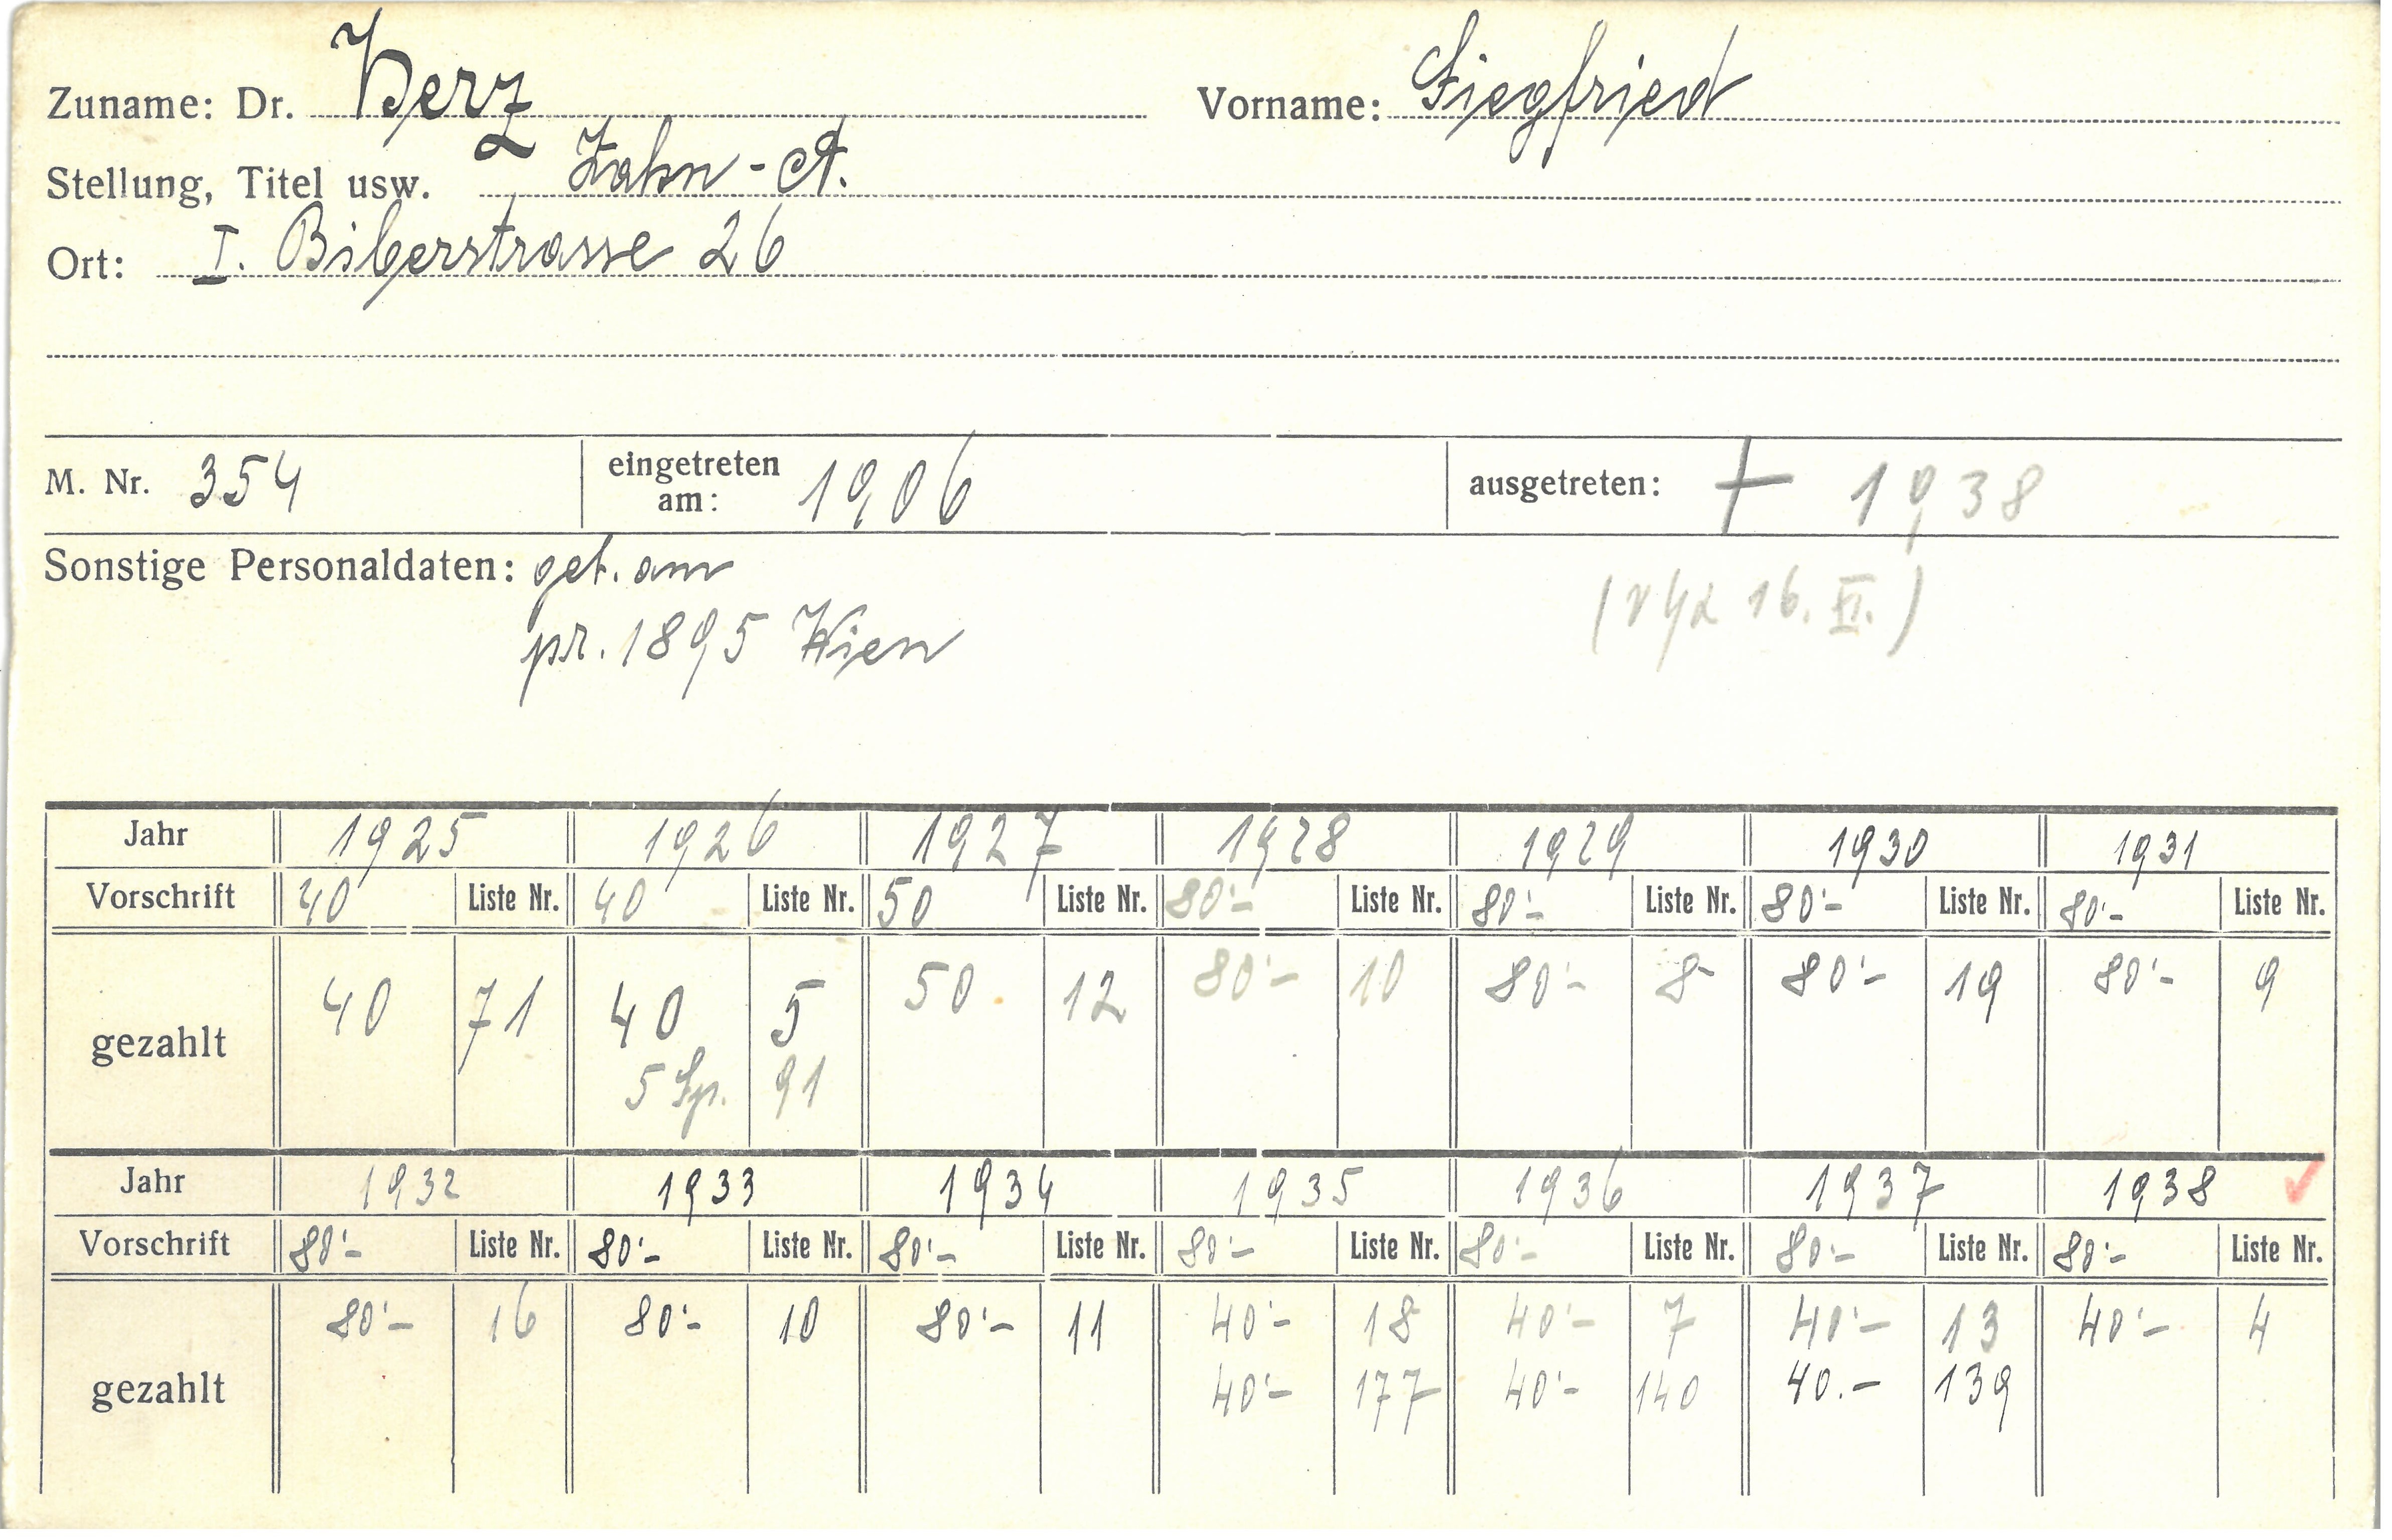 Zuname: Dr. Herz Vorname: Siegfried
Stellung, Titel usw. Zahn-A.
Ort: I. Biberstrasse 26
M. Nr. 354 eingetreten am: 1906 ausgetreten: † 1938
Sonstige Personaldaten: geb. am
16. VI.)
pr. 1895 Wien
Jahr 1925 1926 1927 1928 1929 1930 1931
Vorschrift 40 Liste Nr. 40 Liste Nr. 50 Liste Nr. 80'- Liste Nr. 80'- Liste Nr. 80'- Liste Nr. 80'- Liste Nr.
gezahlt 40 71 40 5 50 12 80'- 10 80'- 8 80'- 19 80'- 9
5 Sp. 91
Jahr 1932 1933 1934 1935 1936 1937 1938 ✓
Vorschrift 80'- Liste Nr. 80'- Liste Nr. 80'- Liste Nr. 80'- Liste Nr. 80'- Liste Nr. 80'- Liste Nr. 80'- Liste Nr.
gezahlt 80'- 16 80'- 10 80'- 11 40'- 18 40'- 7 40'- 13 40'- 4
40'- 177 40'- 140 40.- 139